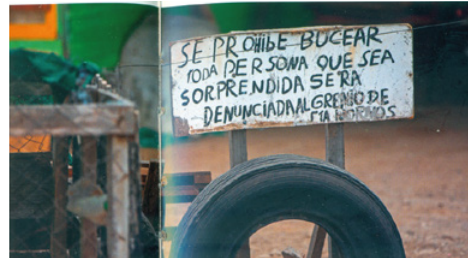 SE PROHIBE BUCEAR
TODA PERSONA QUE SEA
SORPRENDIDA SERA
DENUNCIADA AL GREMIO DE
CTA HORNOS